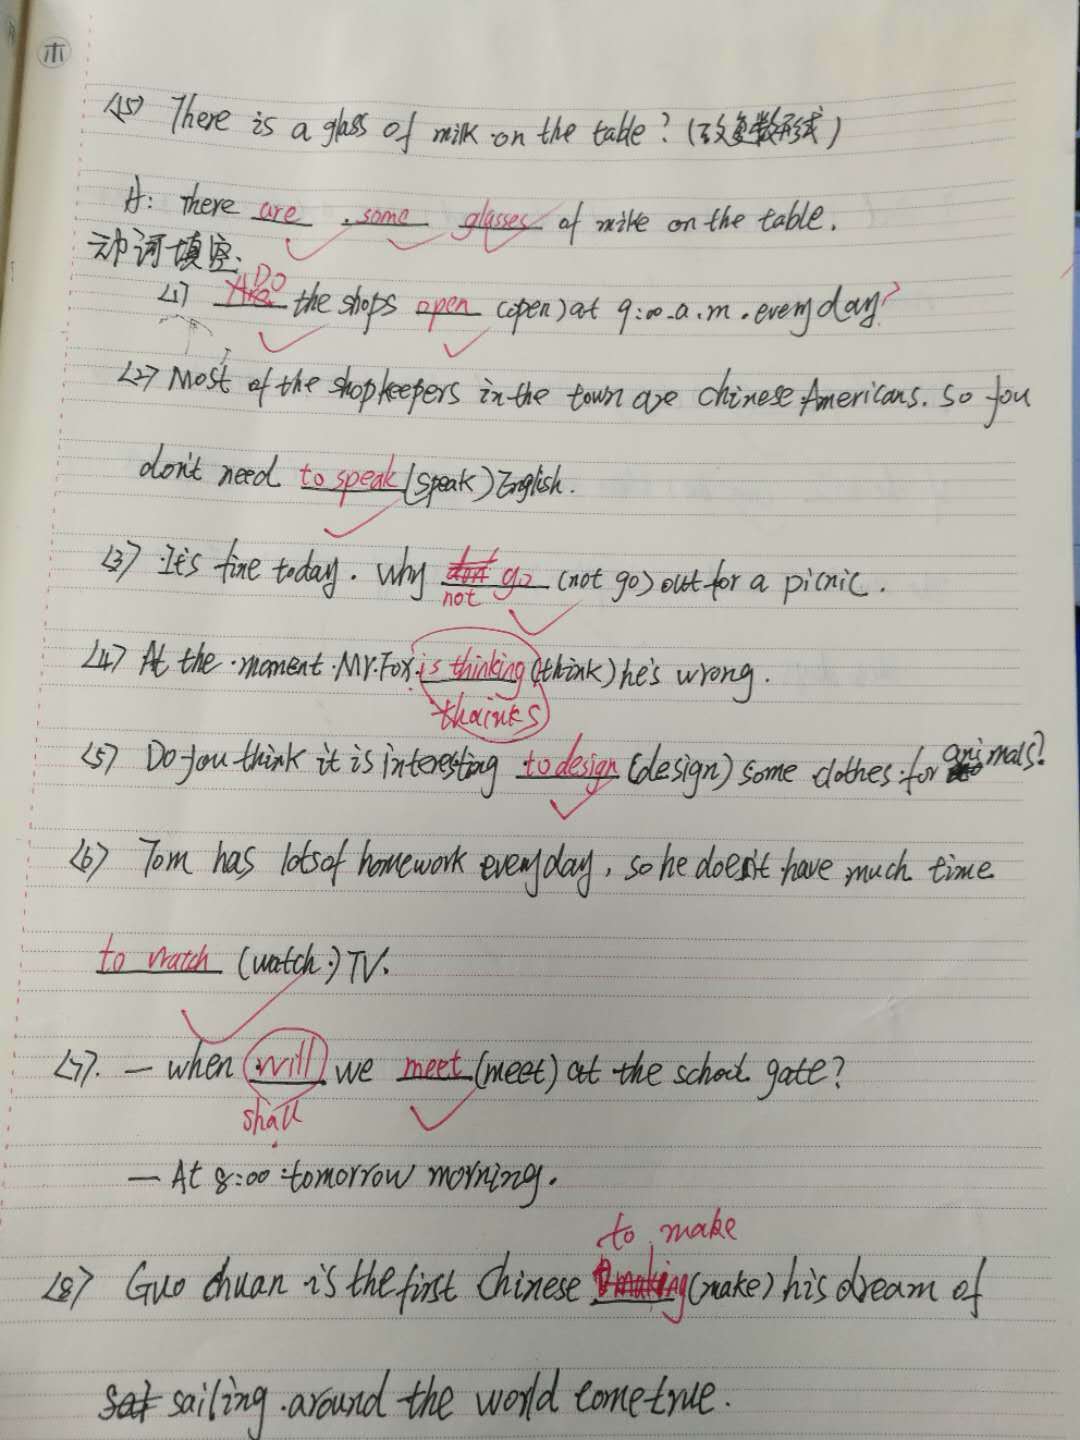 木
<15> There is a glass of milk on the table? (改复数形式)
A: There are some glasses of milk on the table.
动词填空:
<1> Are DO the shops open (open) at 9:00 a.m. everyday?
<2> Most of the shopkeepers in the town are Chinese Americans. So you
don't need to speak (speak) English.
<3> It's fine today. Why don't not go (not go) out for a picnic.
<4> At the moment Mr. Fox is thinking (think) he's wrong.
thainks
<5> Do you think it is interesting to design (design) some clothes for animals?
<6> Tom has lots of homework everyday, so he doesn't have much time
to watch (watch) TV.
<7>. — when will we meet (meet) at the school gate?
shall
— At 8:00 tomorrow morning.
to make
<8> Guo chuan is the first Chinese making (make) his dream of
sat sailing around the world come true.